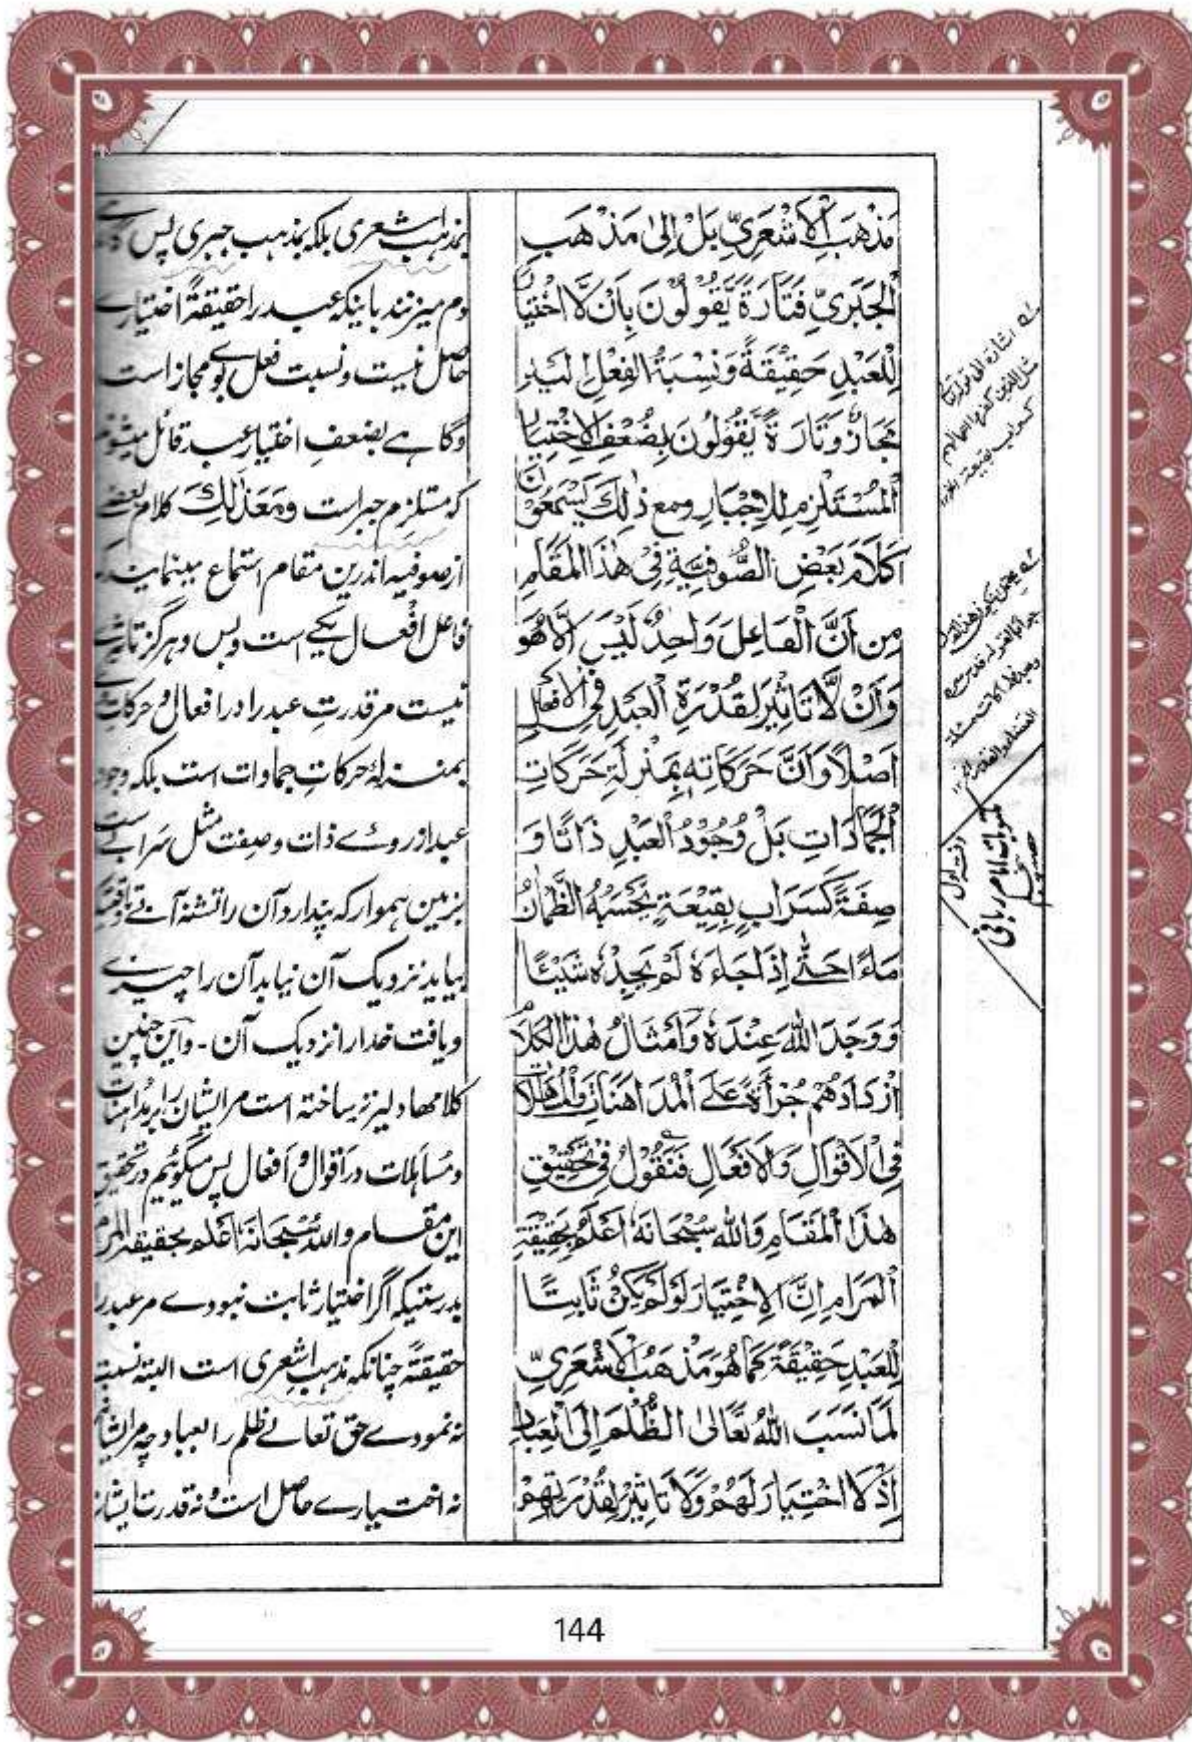 مَذْهَبِ الْاَشْعَرِيِّ بَلْ اِلىٰ مَذْهَبِ
الْجَبَرِيِّ فَتَارَةً يَّقُوْلُوْنَ بِاَنْ لَّا اخْتِيَارَ
لِلْعَبْدِ حَقِيْقَةً وَنِسْبَةُ الْفِعْلِ اِلَيْهِ
مَجَازٌ وَتَارَةً يَّقُوْلُوْنَ بِضُعْفِ الْاِخْتِيَارِ
الْمُسْتَلْزِمِ لِلْاِجْبَارِ ومع ذٰلِكَ يَسْمَعُوْنَ
كَلَامَ بَعْضِ الصُّوْفِيَّةِ فِيْ هٰذَا الْمَقَامِ
مِن اَنَّ الْفَاعِلَ وَاحِدٌ لَيْسَ اِلَّا هُوَ
وَاَنْ لَّا تَاثِيْرَ لِقُدْرَةِ الْعَبْدِ فِي الْاَفْعَالِ
اَصْلًا وَاَنَّ حَرَكَاتِهٖ بِمَنْزِلَةِ حَرَكَاتِ
الْجَمَادَاتِ بَلْ وُجُوْدُ الْعَبْدِ ذَاتًا وَ
صِفَةً كَسَرَابٍ بِقِيْعَةٍ يَّحْسَبُهُ الظَّمْاٰنُ
مَاءً حَتّٰى اِذَا جَاءَهٗ لَمْ يَجِدْهُ شَيْئًا
وَوَجَدَ اللّٰهَ عِنْدَهٗ وَاَمْثَالُ هٰذَا الْكَلَامِ
اَزْدَادَهُمْ جُرْأَةً عَلَى الْمُدَاهَنَاتِ وَالْمُسَاهَلَاتِ
فِي الْاَقْوَالِ وَالْاَفْعَالِ فَنَقُوْلُ فِيْ تَحْقِيْقِ
هٰذَا الْمَقَامِ وَاللّٰهُ سُبْحَانَهٗ اَعْلَمُ بِحَقِيْقَةِ
الْمَرَامِ اِنَّ الْاِخْتِيَارَ لَوْ لَمْ يَكُنْ ثَابِتًا
لِلْعَبْدِ حَقِيْقَةً كَمَا هُوَ مَذْهَبُ الْاَشْعَرِيِّ
لَمَا نَسَبَ اللّٰهُ تَعَالٰى الظُّلْمَ اِلَى الْعِبَادِ
اِذْ لَا اخْتِيَارَ لَهُمْ وَلَا تَاثِيْرَ لِقُدْرَتِهِمْ
بمذہب اشعری بلکہ بمذہب جبری پس گاہے
دم میزنند باینکہ عبد را حقیقۃً اختیارے
حاصل نیست و نسبت فعل بوے مجاز است
وگاہے بضعفِ اختیار عبد قائل میشوند
کہ مستلزمِ جبر است ومَعَذٰلِكَ کلام بعض
از صوفیہ اندرین مقام استماع مینمایند
فاعل افعال یکے است وبس وہرگز تاثیرے
نیست مر قدرتِ عبد را در افعال و حرکات
بمنزلۂ حرکاتِ جمادات است بلکہ وجود
عبد از روئے ذات و صفت مثل سراب است
بزمین ہموار کہ پندارد آن را تشنہ آبے تا وقتیکہ
بیاید نزدیک آن نیابد آن را چیزے
ویافت خدا را نزدیک آن۔ واین چنین
کلامہا دلیر تر ساخته است مر ایشان را بر مداہنات
ومساہلات در اقوال و افعال پس میگوئیم در تحقیق
این مقام واللهُ سُبْحَانَهٗ اَعْلَمُ بحقیقة المرام
بدرستیکہ اگر اختیار ثابت نبودے مر عبد را
حقیقۃً چنانکہ مذہب اشعری است البتہ نسبت
نہ نمودے حق تعالے ظلم را بعباد چہ مر ایشان
نہ اختیارے حاصل است و نہ قدرت ایشان
مکتوبات امام ربانی
دفتر اول
144